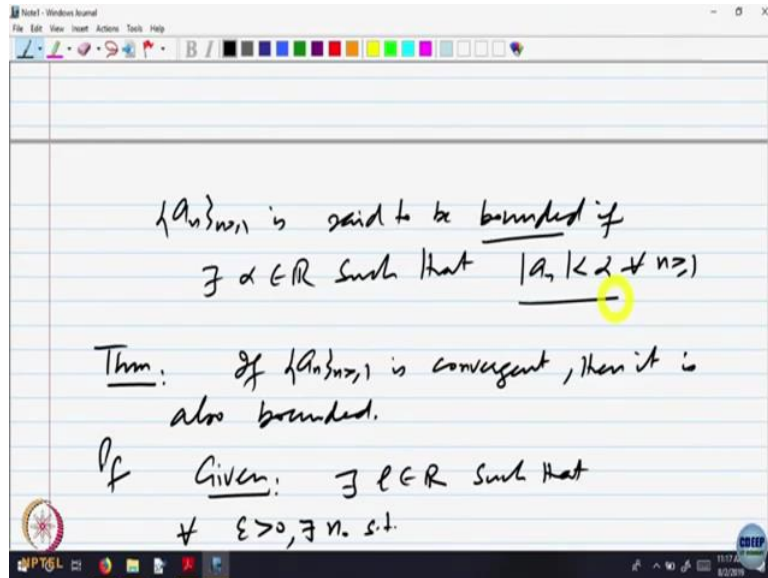 Note1 - Windows Journal
File Edit View Insert Actions Tools Help
B I
{aₙ}ₙ≥₁ is said to be bounded if
∃ α ∈ ℝ such that |aₙ| < α ∀ n ≥ 1
Thm: If {aₙ}ₙ≥₁ is convergent, then it is
also bounded.
Pf Given: ∃ l ∈ ℝ such that
∀ ε > 0, ∃ n₀ s.t.
NPTEL
CDEEP
11:17
8/2/2019